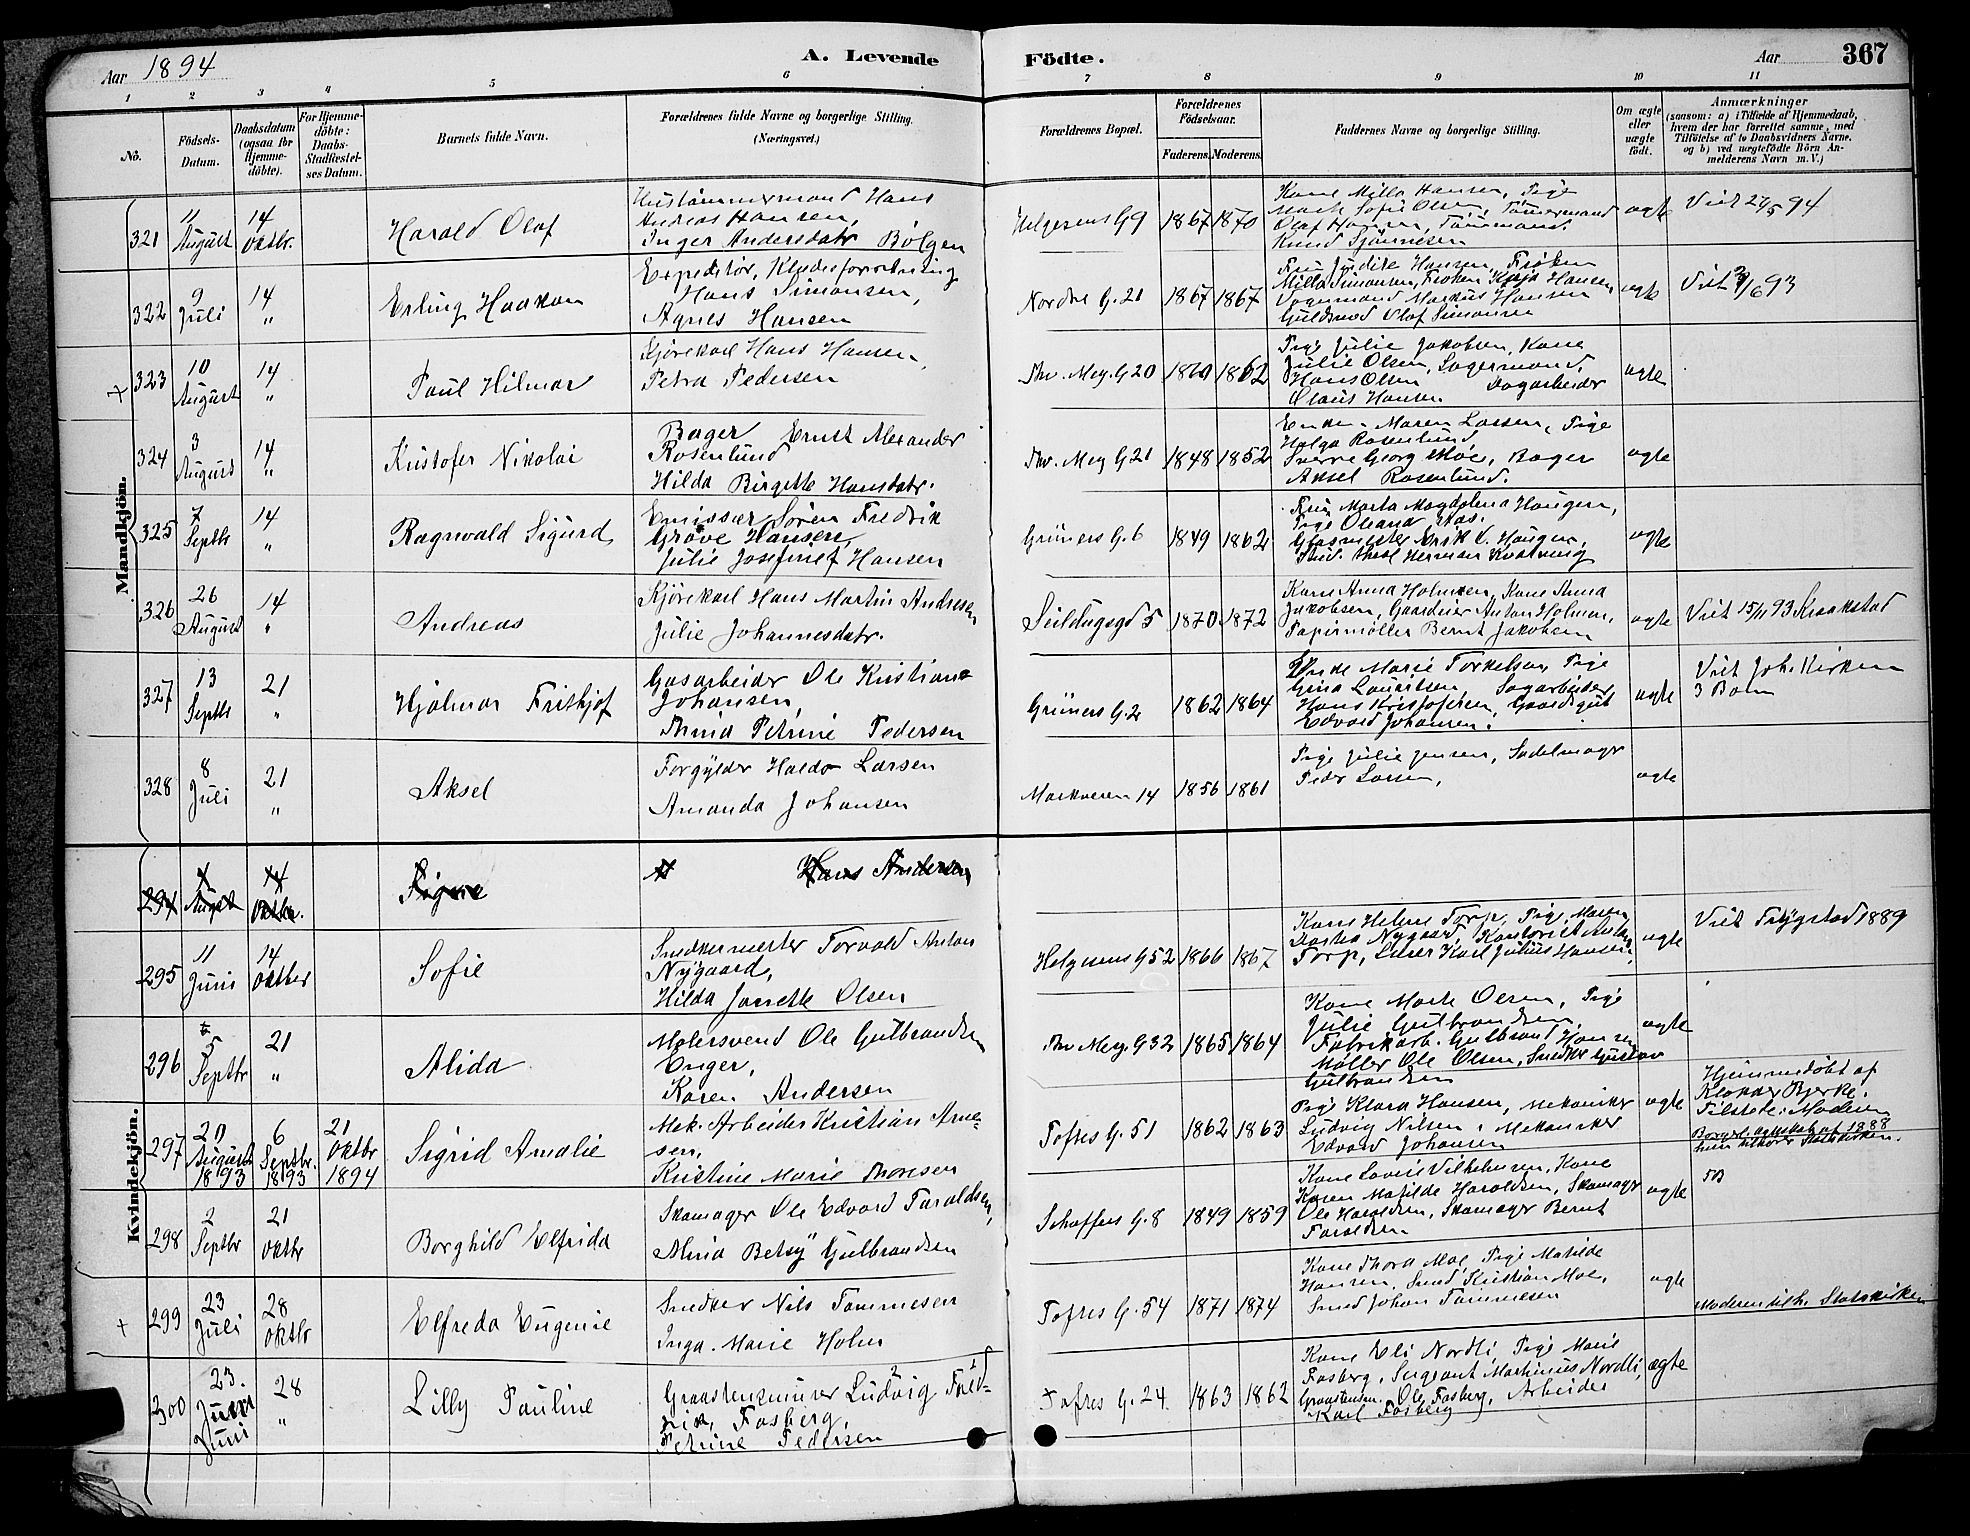 Aar 1894
A. Levende
Födte.
Aar
367
1 2 3 4 5 6 7 8 9 10 11
No.
Födsels-
Datum.
Daabsdatum
(ogsaa for
Hjemme-
döbte).
For Hjemme-
döbte:
Daabs-
Stadfæstel-
ses Datum.
Barnets fulde Navn.
Forældrenes fulde Navne og borgerlige Stilling.
(Næringsvei.)
Forældrenes Bopæl.
Forældrenes
Födselsaar.
Faderens. Moderens.
Faddernes Navne og borgerlige Stilling.
Om ægte
eller
uægte
födt.
Anmærkninger
(saasom: a) i Tilfælde af Hjemmedaab,
hvem der har forrettet samme, med
Tilföielse af to Daabsvidners Navne.
og b) ved uægtefödte Börn An-
melderens Navn m. V.)
Mandkjön.
321
11
August
14
Oktbr.
Harald Olaf
Hustömmermand Hans
Andreas Hansen,
Inger Andersdatr Bølgen
Helgesens G 9
1867 1870
Kone Milla Hansen, Pige
Marte Sofie Olsen, Tömmermand
Olaf Hansen, Tömmermd.
Knud
ægte
Viet 27/5 94
322
9
Juli
14
"
Erling Haakon
Expeditör, Klædesforretning
Hans Simonsen,
Agnes Hansen
Nordre G. 21
1867 1867
Fru Judite Hansen, Frøken
Milla Simonsen, Frøken Kaja Hansen
Vognmand Markus Hansen
Guldsmed Olaf Simonsen
ægte
Viet /6 93
+ 323
10
August
14
"
Paul Hilmar
Kjörekarl Hans Hansen,
Petra Pedersen
Thv. Mey. G 20
1860 1862
Pige Julie Jakobsen, Kone
Julie Olsen, Lagermand,
Hans Olsen Dagarbeider
Olaus Hansen
ægte
324
3
August
14
"
Kristofer Nikolai
Bager Ernst Alexander
Rosenlund
Hilda Birgitte Hansdatr.
Thv. Mey G. 21
1848 1852
Enke Maren Larsen, Pige
Helga Rosenlund
Sverre Georg Moe, Bager
Aksel Rosenlund.
ægte
325
7
Septbr
14
"
Ragnvald Sigurd
Emissær Sören Fredrik
Grove Hansen,
Julie Josefine Hansen
Grüners G. 6
1849 1862
Fru Marta Magdalena Haugen,
Pige Oleana Aas.
Glasmester Erik C. Haugen,
Stud. theol Herman Kvalsvig
ægte
326
26
August
14
"
Andreas
Kjörekarl Hans Martin Andresen
Julie Johannesdatr.
Seildugsgd 5
1870 1872
Kone Anna Holmsen, Kone Anna
Jakobsen, Gaardeier Anton Holmsen,
Papirmøller Bernt Jakobsen
ægte
Viet 15/11 93 Kraakstad
327
13
Septbr
21
"
Hjalmar Frithjof
Gasarbeider Ole Kristian
Johansen,
Thrina Petrine Pedersen
Grüners G. 2
1862 1864
Enke Marie Torkelsen, Pige
Gina Lauritsen, Sagarbeider
Hans Kristofersen, Gaardsgut
Edvard Johansen.
ægte
Viet Joh. Kirken
3 Barn
328
8
Juli
21
"
Aksel
Forgylder Haldor Larsen
Amanda Johansen
Markveien 14
1856 1861
Pige Julie Jensen, Sadelmager
Peder Larsen,
ægte
Kvindekjön.
294
August
14
Oktbr.
Signe
Hans Andersen
295
11
Juni
14
Oktbr
Sofie
Snedkermester Torvald Anton
Nygaard,
Hilda Janette Olsen
Helgesens G 52
1866 1867
Kone Helene Torp, Pige Marten
Dortea Nygaard, Kontorist Anton
Torp, Lærer Karl Julius Hansen,
ægte
Viet Trygstad 1889
296
5
Septbr
21
"
Alida
Malersvend Ole Gulbrandsen
Enger,
Karen Andersen
Thv Mey. G 32
1865 1864
Kone Marte Olsen, Pige
Julie Gulbrandsen,
Fabrikarb. Gulbrand Hansen
Møller Ole Olsen, Snedker Gustav
Gulbrandsen
ægte
297
20
August
1893
6
Septbr.
1893
21
Oktbr
1894
Sigrid Amalie
Mek. Arbeider Kristian Arne-
sen,
Kristine Marie Thoresen
Toftes G. 51
1862 1863
Pige Klara Hansen, Mekaniker
Ludvig Nilsen, Mekaniker
Edvard Johansen
ægte
Hjemmedøbt af
Klokker Bjerke.
Tilstede: Moderen
Borgerl. ægteskab af 1888
hun tilhører Statskirken.
298
2
Septbr
21
Oktbr
Borghild Elfrida
Skomager Ole Edvard Faraldsen,
Alvia Betsy Gulbrandsen
Schaffers G. 8
1849 1859
Kone Lovise Vilhelmsen, Kone
Karen Matilde Haroldsen, Skomager
Ole Haroldsen, Skomager Bernt
Faroldsen
ægte
5B
+ 299
23
Juli
28
Oktbr
Elfreda Eugenie
Snedker Nils Tommesen
Inga Marie Holm
Toftes G. 54
1871 1874
Kone Thora Moe, Pige Matilde
Hansen, Smed Kristian Moe,
Smed Johan Tommesen
ægte
Moderen tilh. Statskirken
300
23.
Juni
28
"
Lilly Pauline
Graastensmurer Ludvig Fred-
rik, Fosberg,
Petrine Pedersen
Toftes G. 24
1863 1862
Kone Eli Nordli Pige Marie
Fosberg, Sergeant Martinius Nordli,
Graastensm. Ole Fosberg, Arbeider
Karl Fosberg
ægte